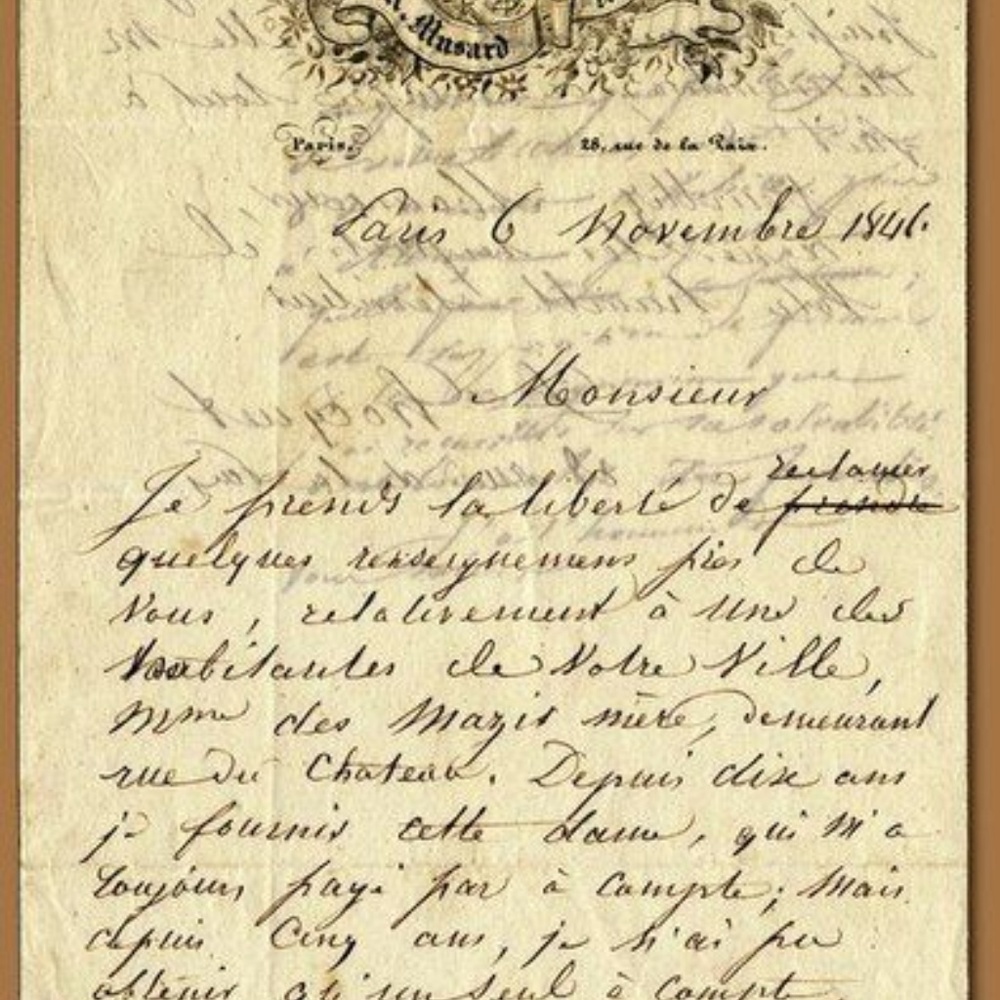 Musard
Paris,
28, rue de la Paix.
Paris 6 Novembre 1846.
Monsieur
reclamer
Je prends la liberté de prendre
quelques renseignemens près de
Vous, relativement à une des
habitantes de Votre Ville,
Mme des Mazis mère, demeurant
rue du Chateau. Depuis dix ans
je fournis cette dame, qui m'a
toujours payé par à compte; mais
depuis cinq ans, je n'ai pu
obtenir qu'un seul à compte